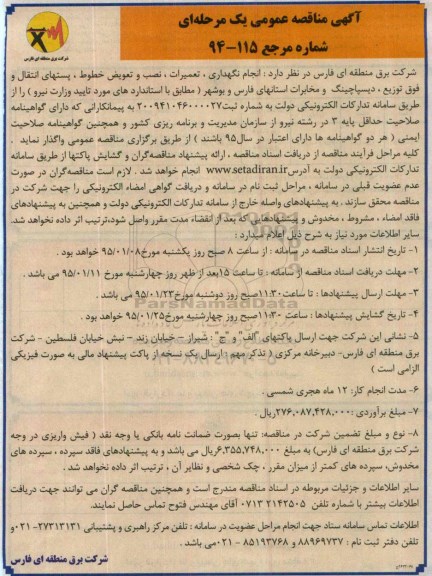 آگهی مناقصه عمومی یک مرحله‌ای
شماره مرجع ۱۱۵-۹۴
شرکت برق منطقه ای فارس
شرکت برق منطقه ای فارس در نظر دارد : انجام نگهداری ، تعمیرات ، نصب و تعویض خطوط ، پستهای انتقال و
فوق توزیع ، دیسپاچینگ و مخابرات استانهای فارس و بوشهر ( مطابق با استاندارد های مورد تایید وزارت نیرو ) را از
طریق سامانه تدارکات الکترونیکی دولت به شماره ثبت ۲۰۰۹۴۱۰۴۶۰۰۰۰۲۷ به پیمانکارانی که دارای گواهینامه
صلاحیت حداقل پایه ۳ در رشته نیرو از سازمان مدیریت و برنامه ریزی کشور و همچنین گواهینامه صلاحیت
ایمنی ( هر دو گواهینامه ها دارای اعتبار در سال۹۵ باشند ) از طریق برگزاری مناقصه عمومی واگذار نماید .
کلیه مراحل فرآیند مناقصه از دریافت اسناد مناقصه ، ارائه پیشنهاد مناقصه‌گران و گشایش پاکتها از طریق سامانه
تدارکات الکترونیکی دولت به آدرس www.setadiran.ir انجام خواهد شد . لازم است مناقصه‌گران در صورت
عدم عضویت قبلی در سامانه ، مراحل ثبت نام در سامانه و دریافت گواهی امضاء الکترونیکی را جهت شرکت در
مناقصه محقق سازند . به پیشنهادهای واصله خارج از سامانه تدارکات الکترونیکی دولت و همچنین به پیشنهادهای
فاقد امضاء ، مشروط ، مخدوش و پیشنهادهایی که بعد از انقضاء مدت مقرر واصل شود،ترتیب اثر داده نخواهد شد.
سایر اطلاعات مورد نیاز به شرح ذیل اعلام میدارد :
۱- تاریخ انتشار اسناد مناقصه در سامانه : از ساعت ۸ صبح روز یکشنبه مورخ۹۵/۰۱/۰۸ خواهد بود .
۲- مهلت دریافت اسناد مناقصه از سامانه : تا ساعت ۱۵بعد از ظهر روز چهارشنبه مورخ ۹۵/۰۱/۱۱ می باشد .
۳- مهلت ارسال پیشنهادها : تا ساعت ۱۱:۳۰صبح روز دوشنبه مورخ۹۵/۰۱/۲۳ می باشد .
۴- تاریخ گشایش پیشنهادها : ساعت ۱۱:۳۰صبح روز چهارشنبه مورخ۹۵/۰۱/۲۵ خواهد بود .
۵- نشانی این شرکت جهت ارسال پاکتهای "الف و ج" : شیراز - خیابان زند - نبش خیابان فلسطین - شرکت
برق منطقه ای فارس- دبیرخانه مرکزی ( تذکر مهم : ارسال یک نسخه از پاکت پیشنهاد مالی به صورت فیزیکی
الزامی است )
۶- مدت انجام کار: ۱۲ ماه هجری شمسی .
۷- مبلغ برآوردی :۲۷۶,۰۸۷,۴۲۸,۰۰۰ریال .
۸- نوع و مبلغ تضمین شرکت در مناقصه: تنها بصورت ضمانت نامه بانکی یا وجه نقد ( فیش واریزی در وجه
شرکت برق منطقه ای فارس) به مبلغ ۶,۳۵۵,۷۴۸,۰۰۰ریال می باشد و به پیشنهادهای فاقد سپرده ، سپرده های
مخدوش، سپرده های کمتر از میزان مقرر ، چک شخصی و نظایر آن ، ترتیب اثر داده نخواهد شد.
سایر اطلاعات و جزئیات مربوطه در اسناد مناقصه مندرج است و همچنین مناقصه گران می توانند جهت دریافت
اطلاعات بیشتر با شماره تلفن ۲۱۴۲۵۰۵ ۰۷۱۳ آقای مهندس فتوح تماس حاصل نمایند.
اطلاعات تماس سامانه ستاد جهت انجام مراحل عضویت در سامانه : تلفن مرکز راهبری و پشتیبانی ۲۷۳۱۳۱۳۱-۰۲۱و
تلفن دفتر ثبت نام : ۸۸۹۶۹۷۳۷ و ۸۵۱۹۳۷۶۸ - ۰۲۱می باشد .
شرکت برق منطقه ای فارس